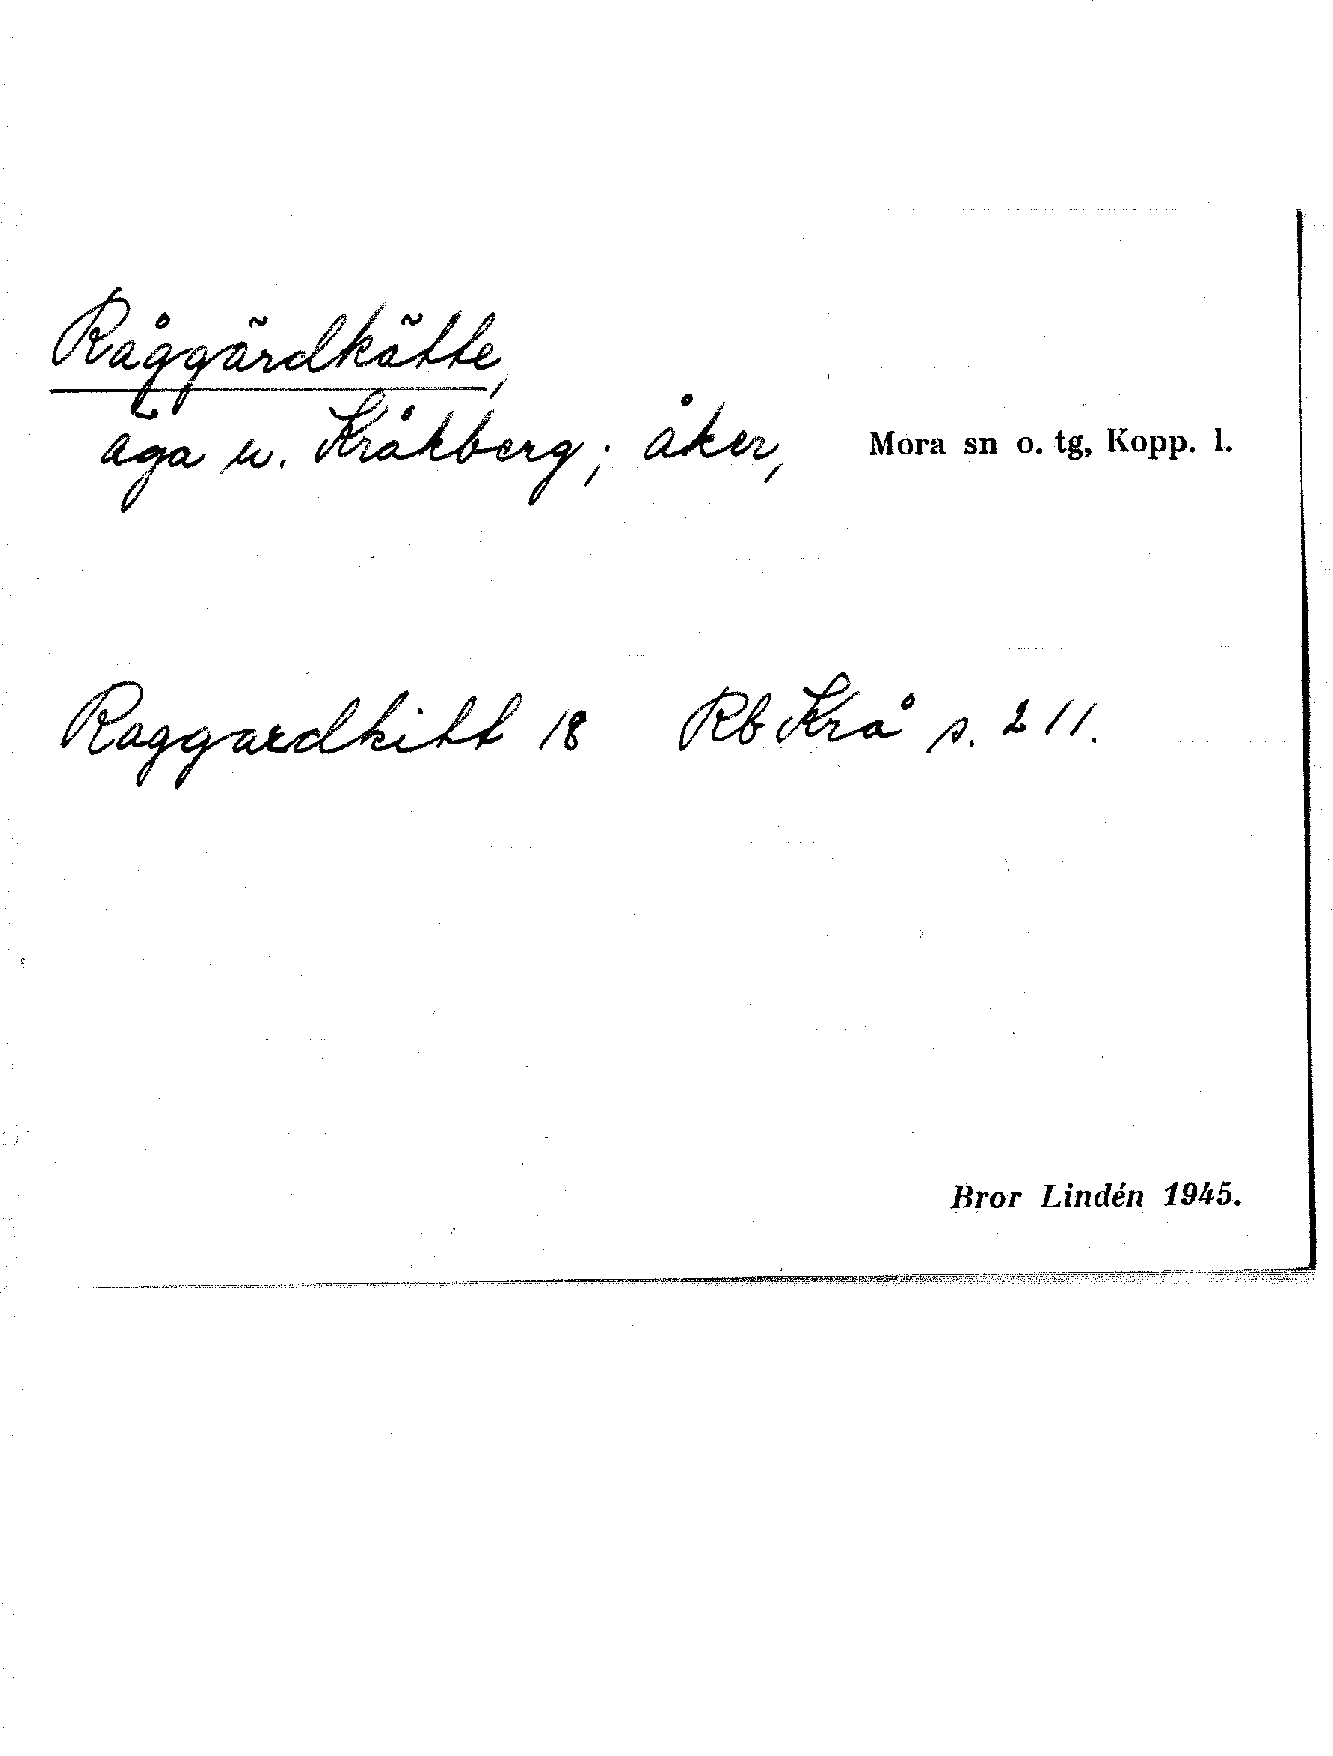 Råggärdkätte,
äga u. Kråkberg; åker, Mora sn o. tg, Kopp. l.
Raggardkitt 18 Rb Krå s. 211.
Bror Lindén 1945.